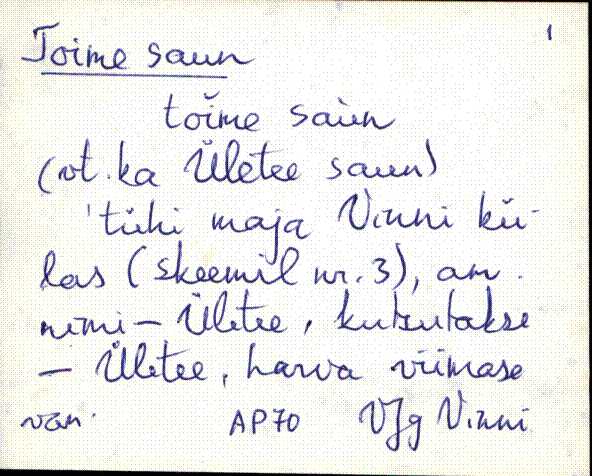 1
Toime saun
toĭme saùn
(vt. kaÜletee saun)
'tühi maja Vinni kü-
las (skeemil nr. 3), am.
nimi – Ületee, kutsutakse
– Ületee, harva viimase
van. AP70 VJg Vinni